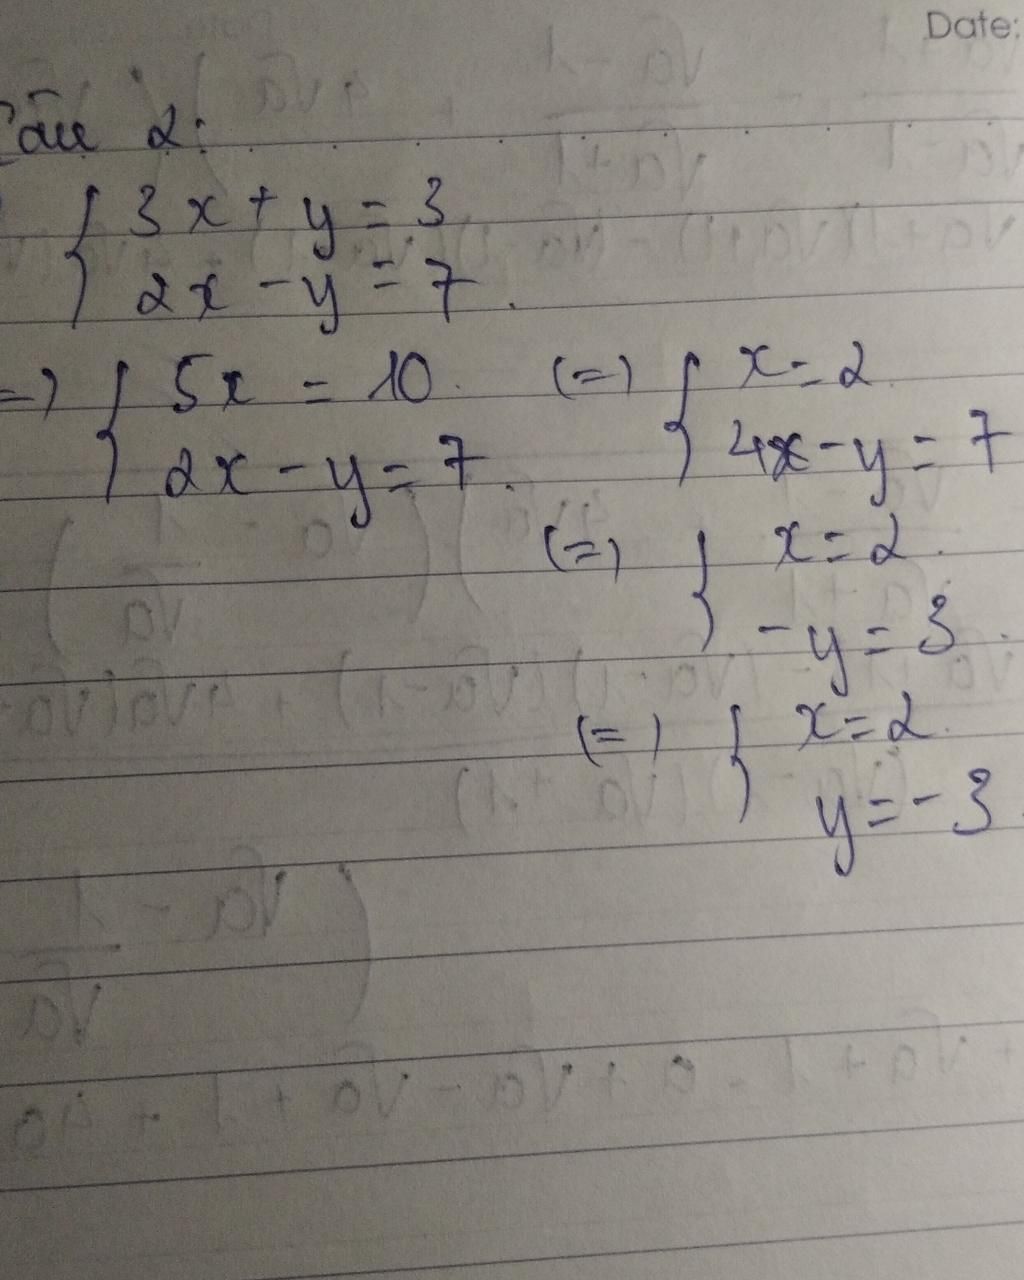 Date:
Câu 2:
{ 3x + y = 3
2x - y = 7.
=) { 5x = 10. (=) { x = 2.
2x - y = 7. 4x - y = 7
(=) { x = 2.
-y = 3.
(=) { x = 2.
y = -3.